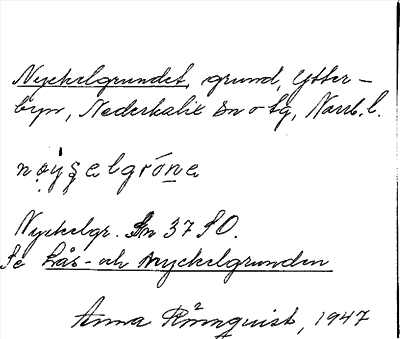 Nyckelgrundet, grund, Ytter-
byn, Nederkalix sn o tg, Norrb. l.
Nyckelgr. Sn 37 SO.
Se Lås- och Nyckelgrunden
Anna Rönnquist, 1947